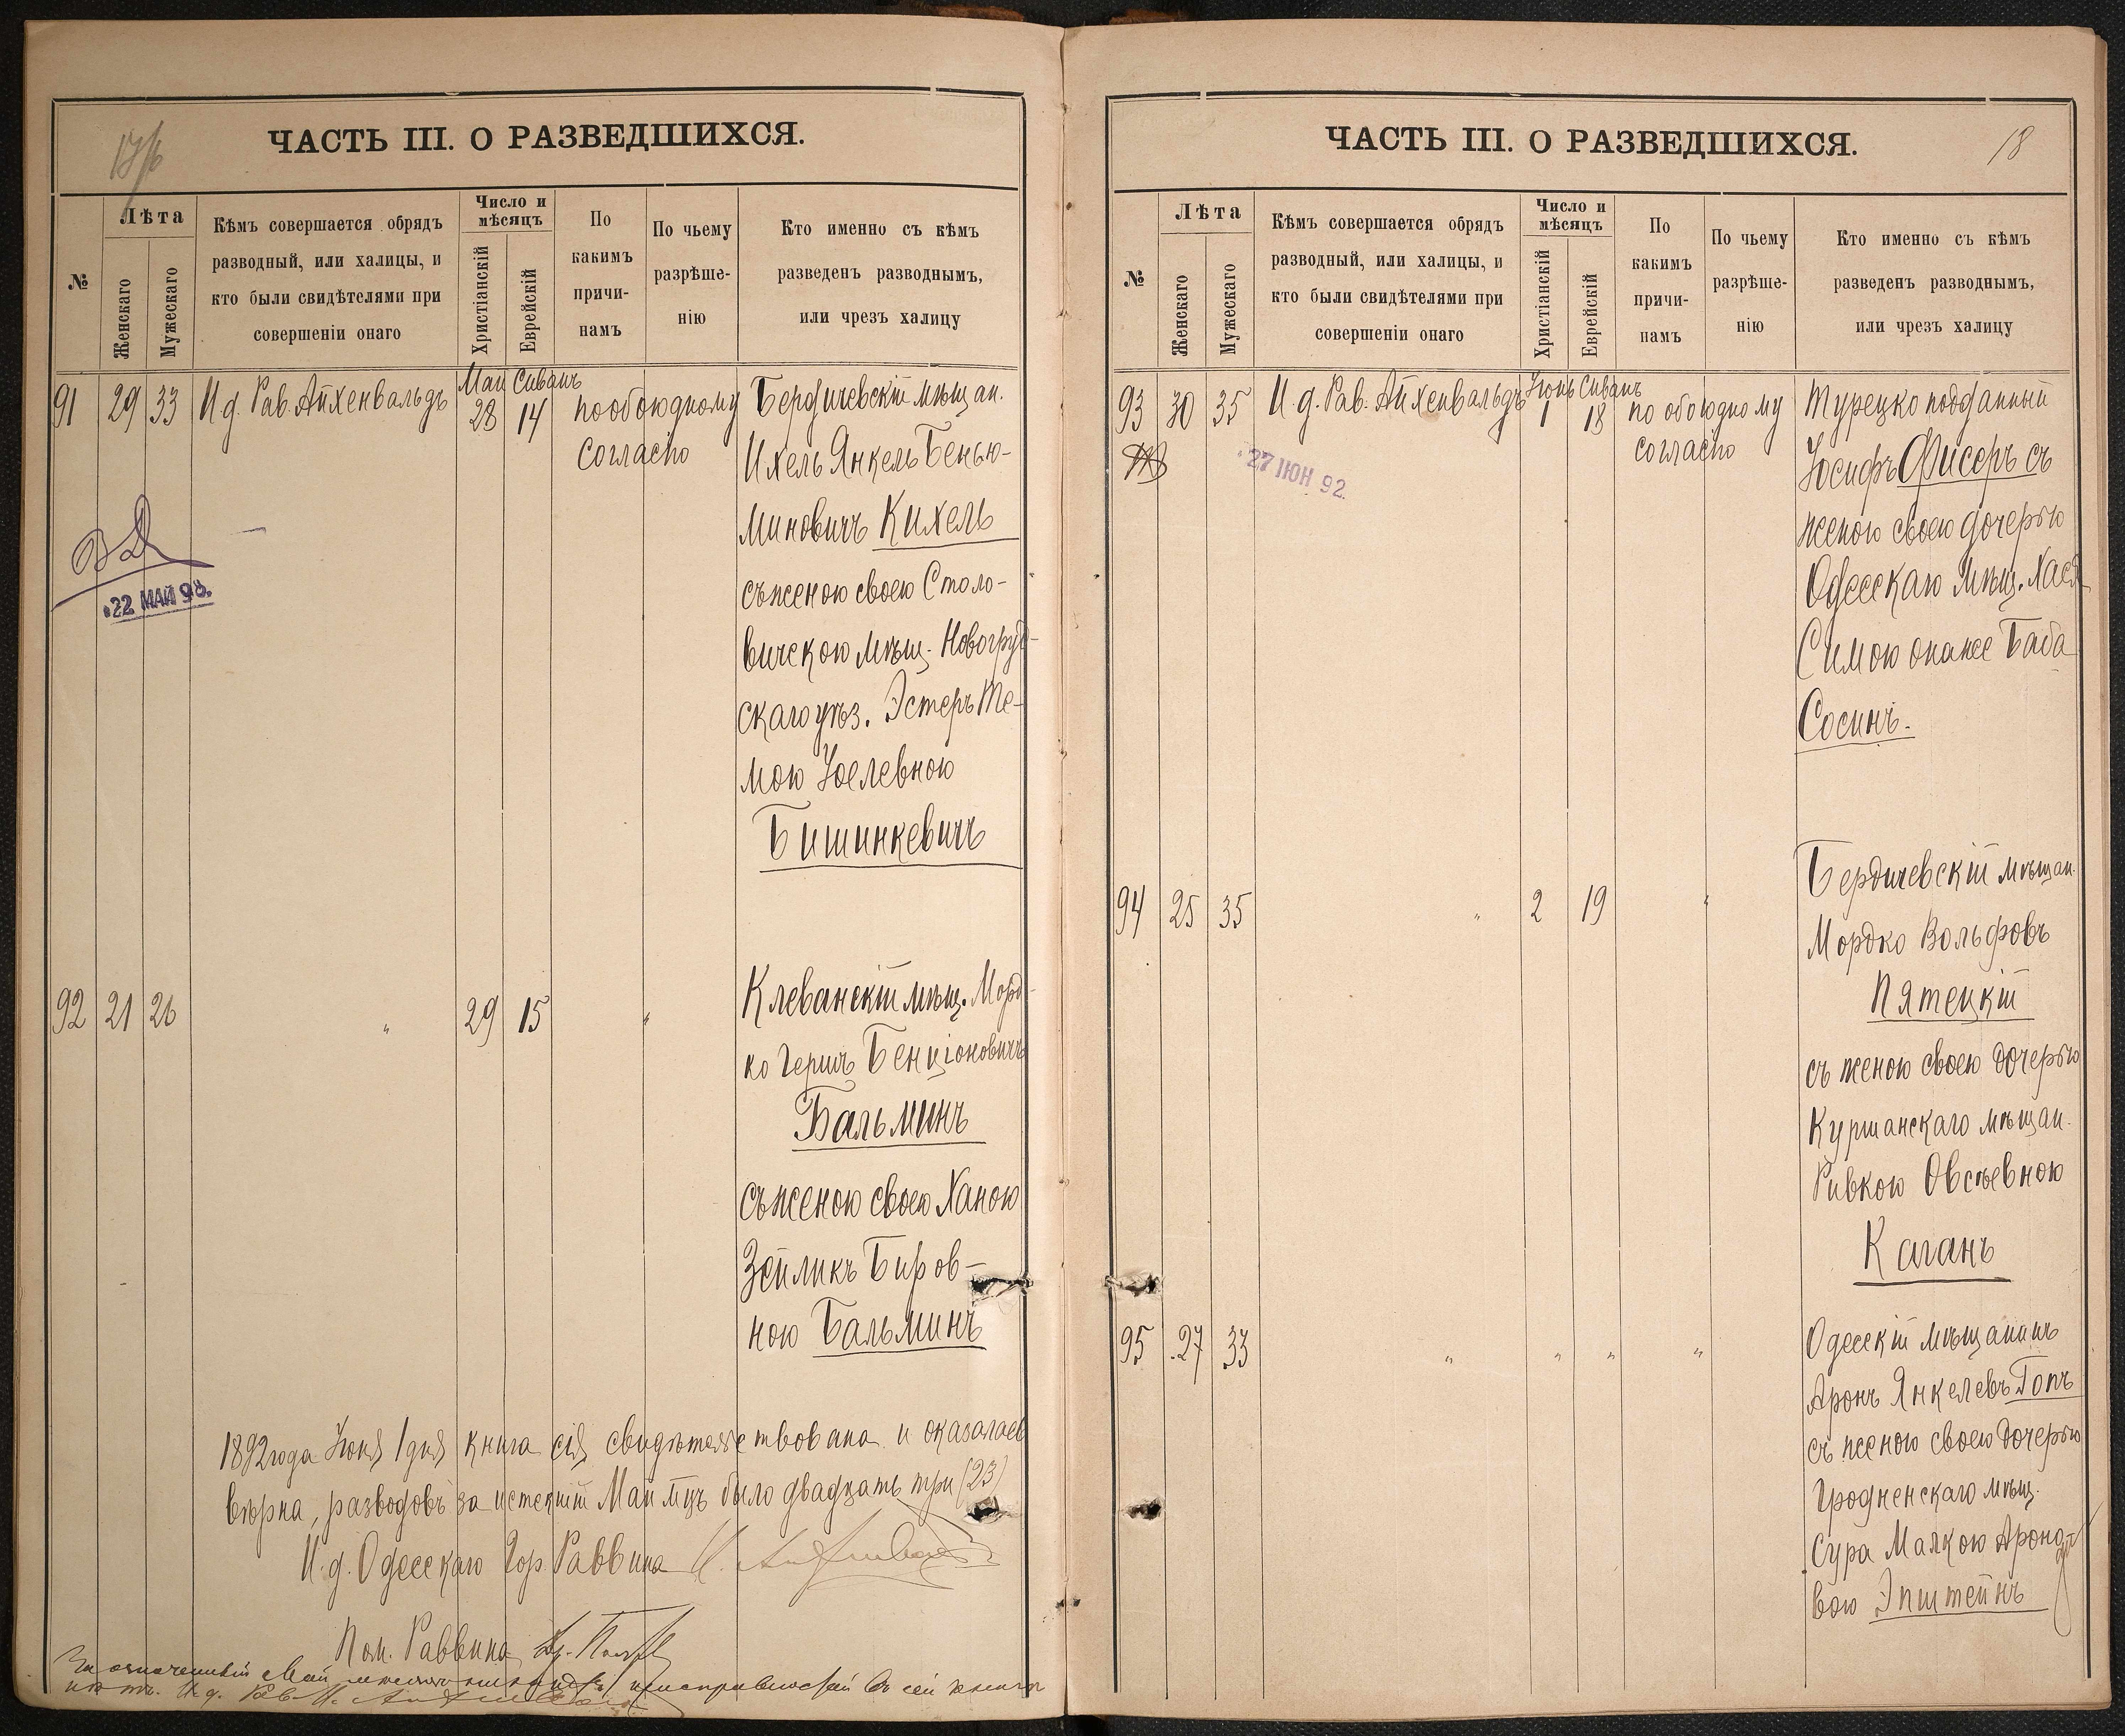 ЧАСТЬ III. О РАЗВЕДШИХСЯ.
№
Лѣта
Женскаго
Мужескаго
Кѣмъ совершается обрядъ
разводный, или халицы, и
кто были свидѣтелями при
совершеніи онаго
Число и
мѣсяцъ
Христіанскій
Еврейскій
По
какимъ
причи-
намъ
По чьему
разрѣше-
нію
Кто именно съ кѣмъ
разведенъ разводнымъ,
или чрезъ халицу
91 29 33 И.д. Рав. Айхенвальдъ
Май Сиванъ
28 14
по обоюдному
согласію
Бердичевскій мѣщан.
Ихель Янкель Бенью-
миновичъ Кихель
съ женою своею Столо-
вичскою мѣщ. Новогруд-
скаго уѣз. Эстеръ Те-
мою Іоелевною
Бишинкевичъ
ВД
22 МАЙ 98.
92 21 26 „ 29 15 „
Клеванскій мѣщ.Морд-
ко Гершъ Бенціоновичъ
Бальминъ
съ женою своею Ханою
Зейликъ Биров-
ною Бальминъ
1892 года Іюня 1 дня книга сія свидѣтельствована и оказалась
вѣрна, разводовъ за истекшій Май мцъ было двадцать три (23)
И.д. Одесскаго Гор. Раввина
Пом. Раввина
За означенный Май
И.д. Рав.
ЧАСТЬ III. О РАЗВЕДШИХСЯ.
18
№
Лѣта
Женскаго
Мужескаго
Кѣмъ совершается обрядъ
разводный, или халицы, и
кто были свидѣтелями при
совершеніи онаго
Число и
мѣсяцъ
Христіанскій
Еврейскій
По
какимъ
причи-
намъ
По чьему
разрѣше-
нію
Кто именно съ кѣмъ
разведенъ разводнымъ,
или чрезъ халицу
93 30 35 И.д. Рав. Айхенвальдъ
Іюнь Сиванъ
1 18
по обоюдному
согласію
27 ІЮН 92.
Турецко подданный
Іосифъ Фисеръ съ
женою своею дочерью
Одесскаго мѣщ. Хася
Симою она же Баба
Сосинъ.
94 25 35 „ 2 19 „
Бердичевскій мѣщан.
Мордко Вольфовъ
Пятецкій
съ женою своею дочерью
Куршанскаго мѣщан.
Ривкою Овсѣевною
Каганъ
95 27 33 „ „ „ „
Одесскій мѣщанинъ
Аронъ Янкелевъ Гопъ
съ женою своею дочерью
Гродненскаго мѣщ.
Сура Малкою Ароно-
вою Эпштейнъ